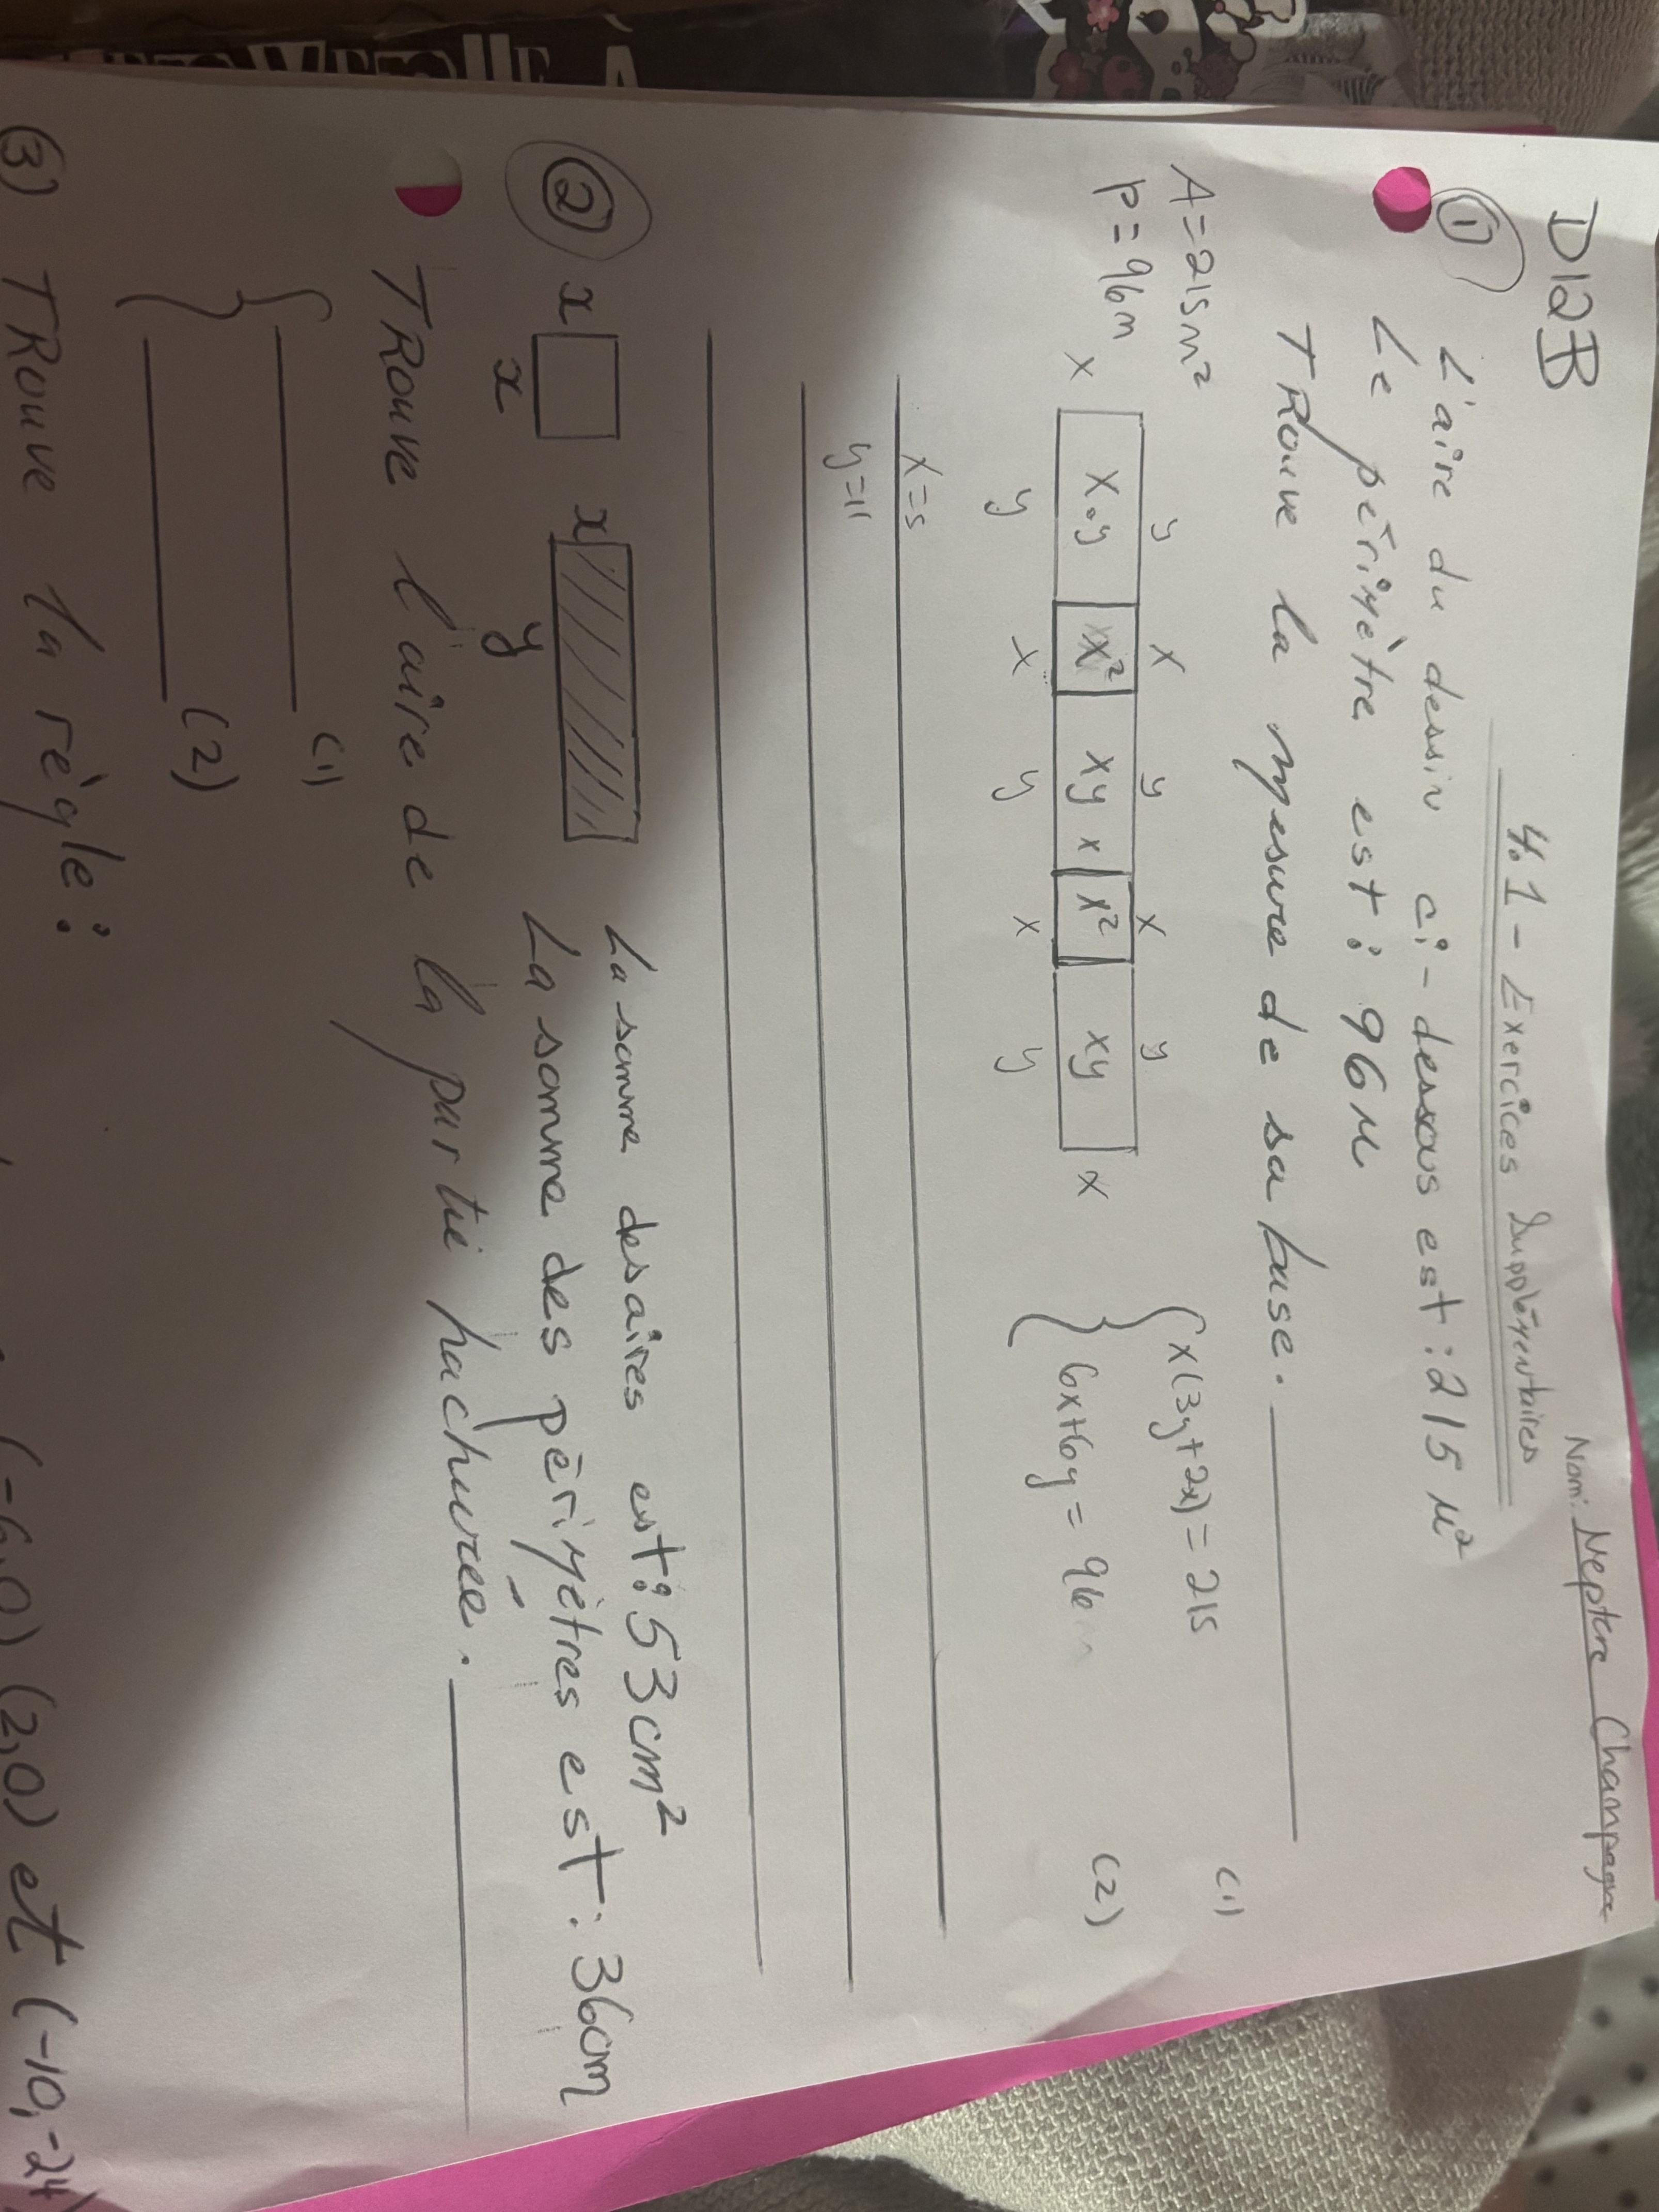 D12B
Nom: Neptune Champagne
4.1 - Exercices Supplémentaires
① L'aire du dessin ci-dessous est : 215 m²
Le périmètre est : 96 m
TRouve la mesure de sa base.
A=215m²
P=96m
{ x(3y+2x) = 215 (1)
6x+6y = 96 (2)
y x y x y
x x·y x² xy x x² xy x
y x y x y
x=5
y=11
② x x La somme des aires est : 53 cm²
x y La somme des périmètres est : 36 cm
TRouve l'aire de la partie hachurée.
{ (1)
(2)
③ TRouve la règle :
(-6,0) (2,0) et (-10,-24)